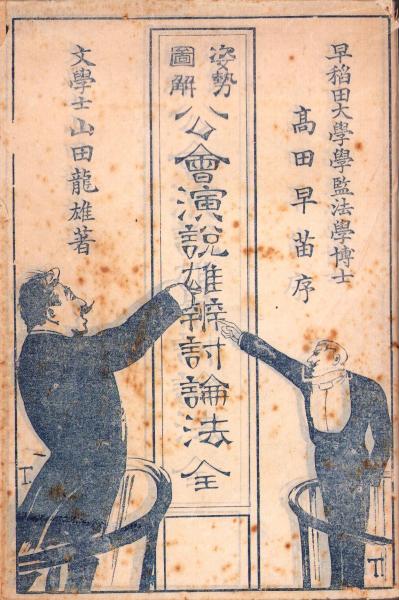 早稻田大學學監法學博士
高田早苗序
姿勢
圖解
公會演說雄辯討論法全
文學士山田龍雄著
T
T